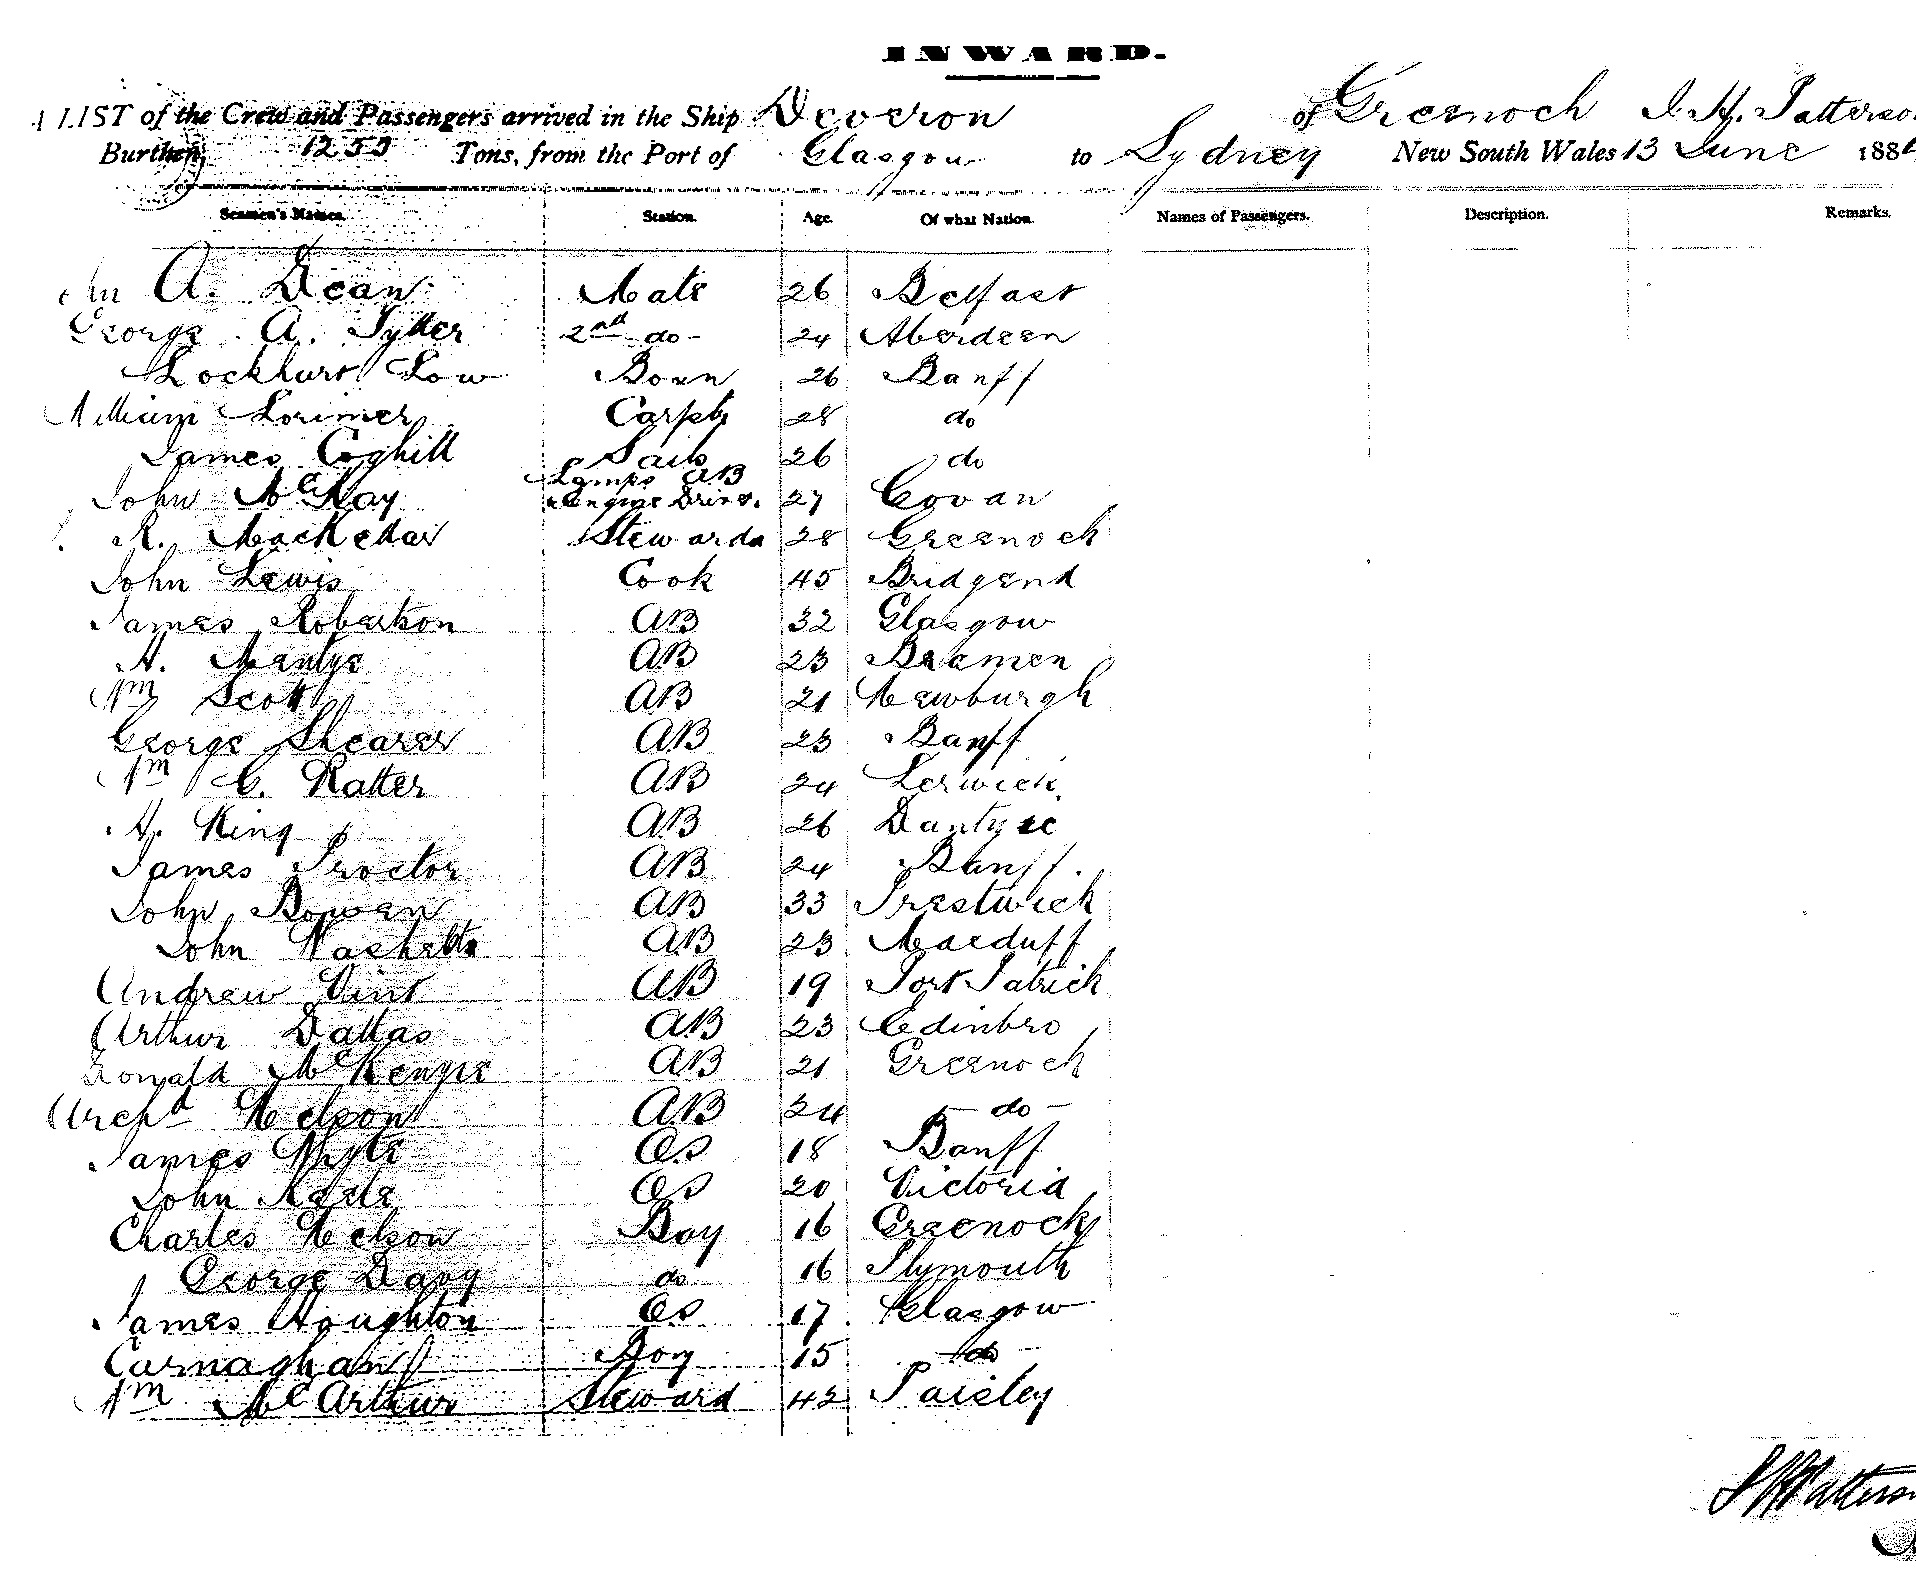 INWARD.
A LIST of the Crew and Passengers arrived in the Ship Deveron of Greenock I. H. Patterso
Burthen, 1255 Tons, from the Port of Glasgow to Sydney New South Wales 13 June 188
Seamen's Names. Station. Age. Of what Nation. Names of Passengers. Description. Remarks.
A. Dean Mate 26 Belfast
George A. Tytler 2nd do - 24 Aberdeen
Lockhart Low Bosn 26 Banff
William Lorimer Carptr 28 do
James Coghill Sails 26 do
Lamps AB
John McKay Engine Driver. 27 Govan
R. MacKellar Steward 28 Greenock
John Lewis Cook 45 Bridgend
James Robertson AB 32 Glasgow
A. Mantye AB 23 Bremen
Wm Scott AB 21 Newburgh
George Shearer AB 23 Banff
Wm C. Ratter AB 24 Lerwick
A. King AB 26 Dantzic
James Proctor AB 24 Banff.
John Bowan AB 33 Prestwick
John AB 23 Macduff
Andrew Vint AB 19 Port Patrick
Arthur Dallas AB 23 Edinbro
Ronald McKenzie AB 21 Greenock
Archd Nelson AB 24 - do -
James Whyte OS 18 Banff
John OS 20 Victoria
Charles Nelson Boy 16 Greenock
George Davy do 16 Plymouth
James Houghton OS 17 Glasgow
Carnaghan Boy 15 do
Wm McArthur Steward 42 Paisley